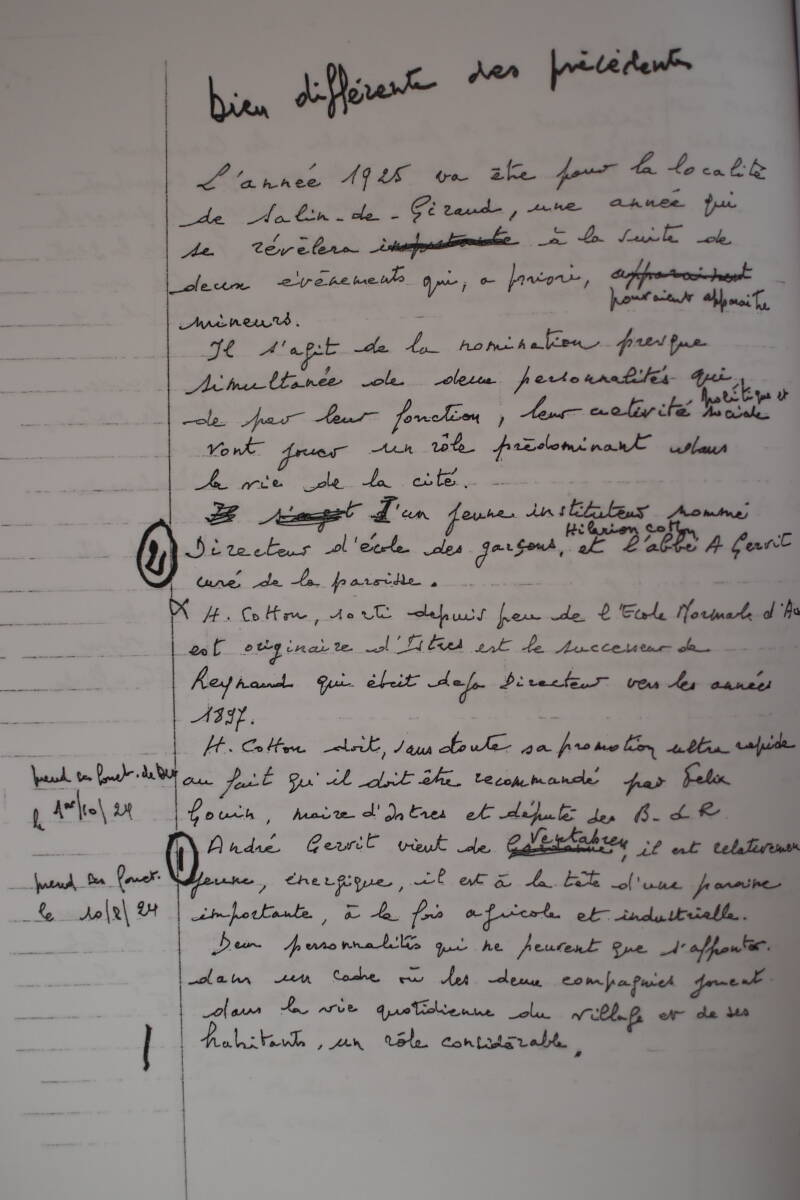 bien différente des précédentes
L'année 1925 va être pour la localité
de Salin-de-Giraud, une année qui
se révèlera importante à la suite de
deux évênements qui, a priori, apparaissent
pouvaient apparaitre
mineurs.
Il s'agit de la nomination presque
simultanée de deux personnalités qui
de par leur fonction, leur activité politique et
sociale
vont jouer un rôle prédominant dans
la vie de la cité.
Il s'agit d'un jeune instituteur nommé
Hilarion Cotton
2 Directeur d'école des garçons, et l'abbé A Gervit
curé de la paroisse.
X H. Cotton, sorti depuis peu de l'Ecole Normale d'
est originaire d'Istres est le successeur de
Reynaud qui était deja Directeur vers les années
1897.
H. Cotton doit, sans doute sa promotion ultra rapide
prend ses fonct. de
au fait qu'il doit être recommandé par Felix
le 1er/10/24
Gouin, maire d'Istres et député des B-d R
Ventabren
1 André Gervit vient de , il est relativement
prend ses fonct.
jeune, énergique, il est à la tête d'une paroisse
le 10/8/24
importante, à la fois agricole et industrielle.
Deux personnalités qui ne peuvent que s'affronter.
dans un cadre où les deux compagnies jouent
dans la vie quotidienne du village et de ses
habitants, un rôle considérable.